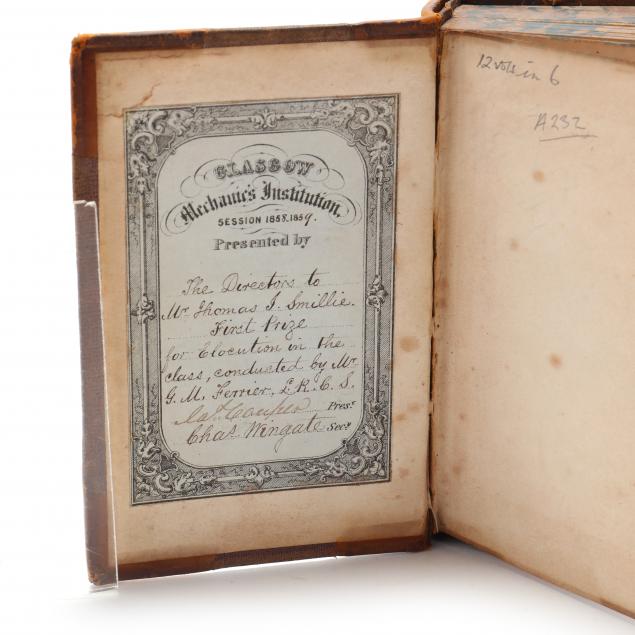 GLASGOW
Mechanic's Institution.
SESSION 1858.1859.
Presented by
The Directors to
Mr Thomas J. Smillie.
First Prize
for Elocution in the
class, conducted by Mr
G. M. Ferrier, L. R. C. S.
Presr.
Chas Wingate Secy.
12 vols in 6
A232